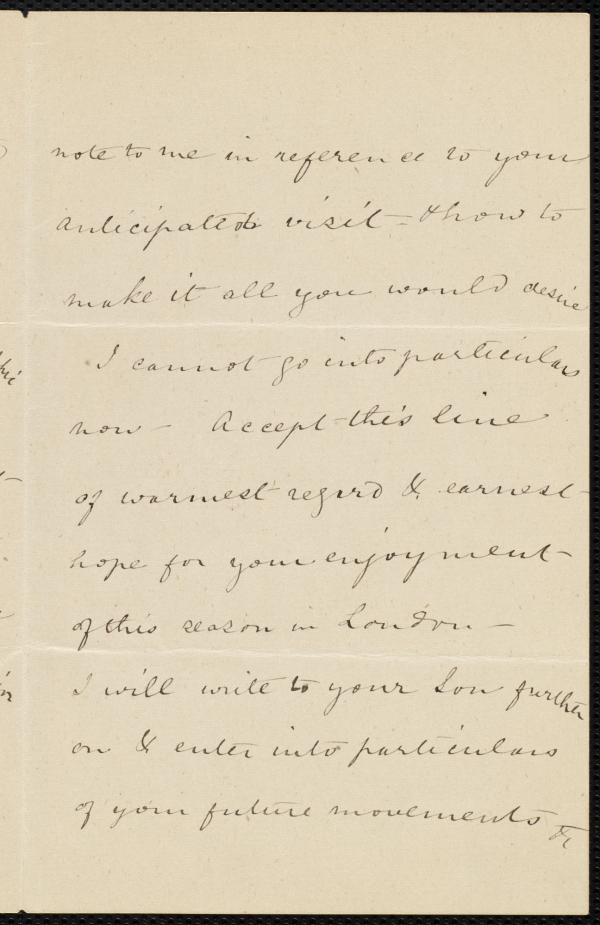 note to me in reference to your
anticipated visit = & how to
make it all you would desire
I cannot go into particulars
now - Accept this line
of warmest regard & earnest
hope for your enjoyment
of this season in London -
I will write to your Son further
on & enter into particulars
of your future movements &c